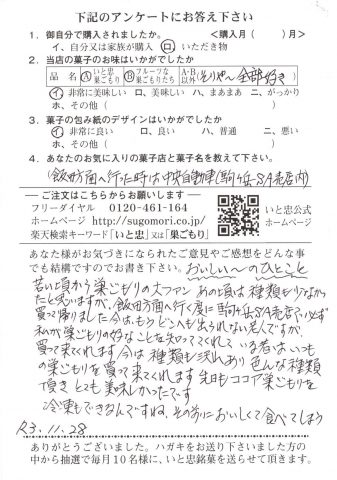 下記のアンケートにお答え下さい
1．御自分で購入されましたか。 ＜購入月（　　）月＞
イ、自分又は家族が購入 ロ、いただき物
2．当店の菓子のお味はいかがでしたか
品　名 Ⓐいと忠巣ごもり Ⓑフルーツな巣ごもりたち A・B以外（そりゃ〜全部好き）
イ、非常に美味しい ロ、美味しい ハ、まあまあ ニ、がっかり
ホ、その他（　　　　　　　　）
3．菓子の包み紙のデザインはいかがでしたか
イ、非常に良い ロ、良い ハ、普通 ニ、悪い
ホ、その他（　　　　　　　　）
4．あなたのお気に入りの菓子店と菓子名を教えて下さい。
（飯田方面へ行った時は中央自動車（駒ヶ岳SA売店内）
―ご注文はこちらからお願いします―
フリーダイヤル　0120-461-164
ホームページ　http://sugomori.co.jp/
楽天検索キーワード「いと忠」又は「巣ごもり」
いと忠公式
ホームページ
あなた様がお気づきになられたご意見やご感想をどんな事
でも結構ですのでお書き下さい。おいしい〜のひとこと
若い頃から巣ごもりの大ファン あの頃は種類も少なかっ
たと思いますが、飯田方面へ行く度に駒ヶ岳SA売店で必ず
買って帰りました 今はもうどこへも出られない
私が巣ごもりの好なことを知ってくれている者はいつも
買って来てくれます 今は種類も沢山あり 色んな種類
の巣ごもりを買って来てくれます 先日もココア巣ごもりを
頂き とても美味しかったです
冷凍もできるんですね、その前においしくて食べてしまう
R3.11.28
ありがとうございました。ハガキをお送り下さいました方の
中から抽選で毎月10名様に、いと忠銘菓を送らせて頂きます。